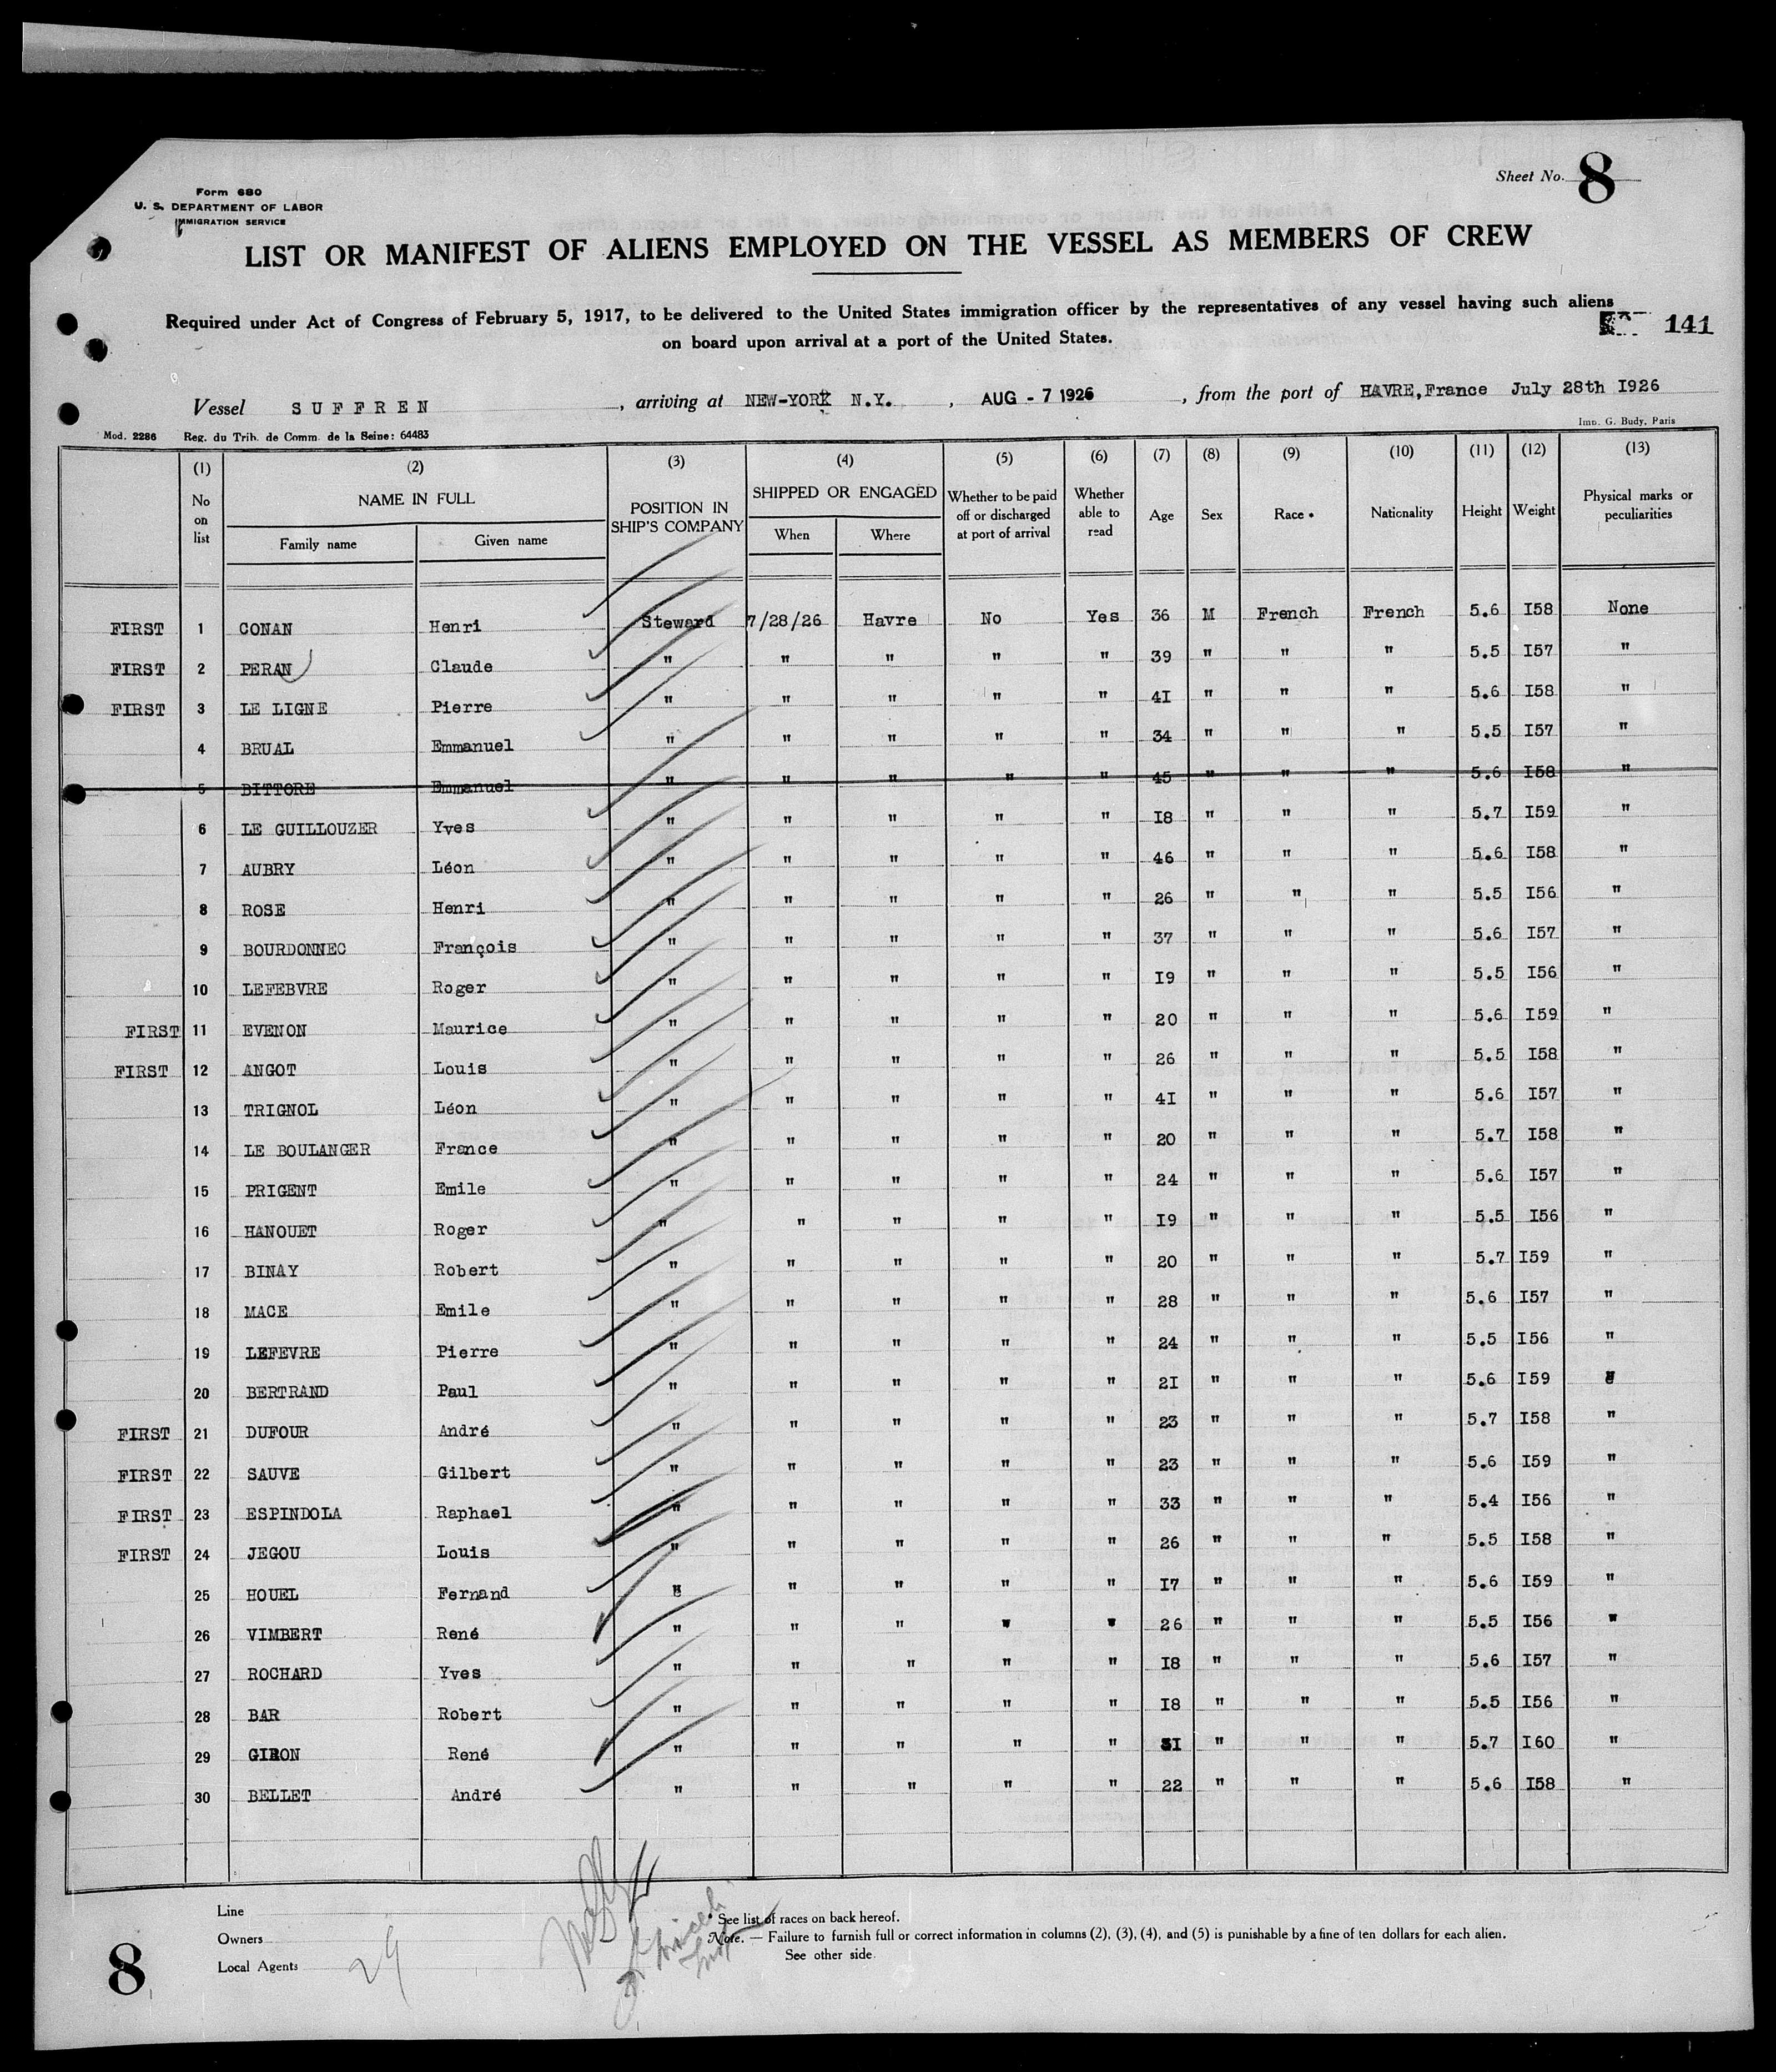 Form 680
U. S. DEPARTMENT OF LABOR
IMMIGRATION SERVICE
Sheet No. 8
LIST OR MANIFEST OF ALIENS EMPLOYED ON THE VESSEL AS MEMBERS OF CREW
Required under Act of Congress of February 5, 1917, to be delivered to the United States immigration officer by the representatives of any vessel having such aliens
on board upon arrival at a port of the United States.
141
Vessel SUFFREN, arriving at NEW-YORK N.Y., AUG - 7 1926, from the port of HAVRE, France July 28th I926
Mod. 2286 Reg. du Trib. de Comm. de la Seine: 64483 Imp. G. Budy, Paris
(1) (2) (3) (4) (5) (6) (7) (8) (9) (10) (11) (12) (13)
No on list NAME IN FULL POSITION IN SHIP'S COMPANY SHIPPED OR ENGAGED Whether to be paid off or discharged at port of arrival Whether able to read Age Sex Race * Nationality Height Weight Physical marks or peculiarities
Family name Given name When Where
FIRST 1 CONAN Henri Steward 7/28/26 Havre No Yes 36 M French French 5.6 I58 None
FIRST 2 PERAN Claude " " " " " 39 " " " 5.5 I57 "
FIRST 3 LE LIGNE Pierre " " " " " 4I " " " 5.6 I58 "
4 BRUAL Emmanuel " " " " " 34 " " " 5.5 I57 "
5 BITTORE Emmanuel " " " " " 45 " " " 5.6 I58 "
6 LE GUILLOUZER Yves " " " " " I8 " " " 5.7 I59 "
7 AUBRY Léon " " " " " 46 " " " 5.6 I58 "
8 ROSE Henri " " " " " 26 " " " 5.5 I56 "
9 BOURDONNEC François " " " " " 37 " " " 5.6 I57 "
10 LEFEBVRE Roger " " " " " I9 " " " 5.5 I56 "
FIRST 11 EVENON Maurice " " " " " 20 " " " 5.6 I59 "
FIRST 12 ANGOT Louis " " " " " 26 " " " 5.5 I58 "
13 TRIGNOL Léon " " " " " 4I " " " 5.6 I57 "
14 LE BOULANGER France " " " " " 20 " " " 5.7 I58 "
15 PRIGENT Emile " " " " " 24 " " " 5.6 I57 "
16 HANOUET Roger " " " " " I9 " " " 5.5 I56 "
17 BINAY Robert " " " " " 20 " " " 5.7 I59 "
18 MACE Emile " " " " " 28 " " " 5.6 I57 "
19 LEFEVRE Pierre " " " " " 24 " " " 5.5 I56 "
20 BERTRAND Paul " " " " " 2I " " " 5.6 I59 "
FIRST 21 DUFOUR André " " " " " 23 " " " 5.7 I58 "
FIRST 22 SAUVE Gilbert " " " " " 23 " " " 5.6 I59 "
FIRST 23 ESPINDOLA Raphael " " " " " 33 " " " 5.4 I56 "
FIRST 24 JEGOU Louis " " " " " 26 " " " 5.5 I58 "
25 HOUEL Fernand " " " " " I7 " " " 5.6 I59 "
26 VIMBERT René " " " " " 26 " " " 5.5 I56 "
27 ROCHARD Yves " " " " " I8 " " " 5.6 I57 "
28 BAR Robert " " " " " I8 " " " 5.5 I56 "
29 GIRON René " " " " " 3I " " " 5.7 I60 "
30 BELLET André " " " " " 22 " " " 5.6 I58 "
Line
Owners
Local Agents 29
* See list of races on back hereof.
Note. — Failure to furnish full or correct information in columns (2), (3), (4), and (5) is punishable by a fine of ten dollars for each alien.
See other side.
8